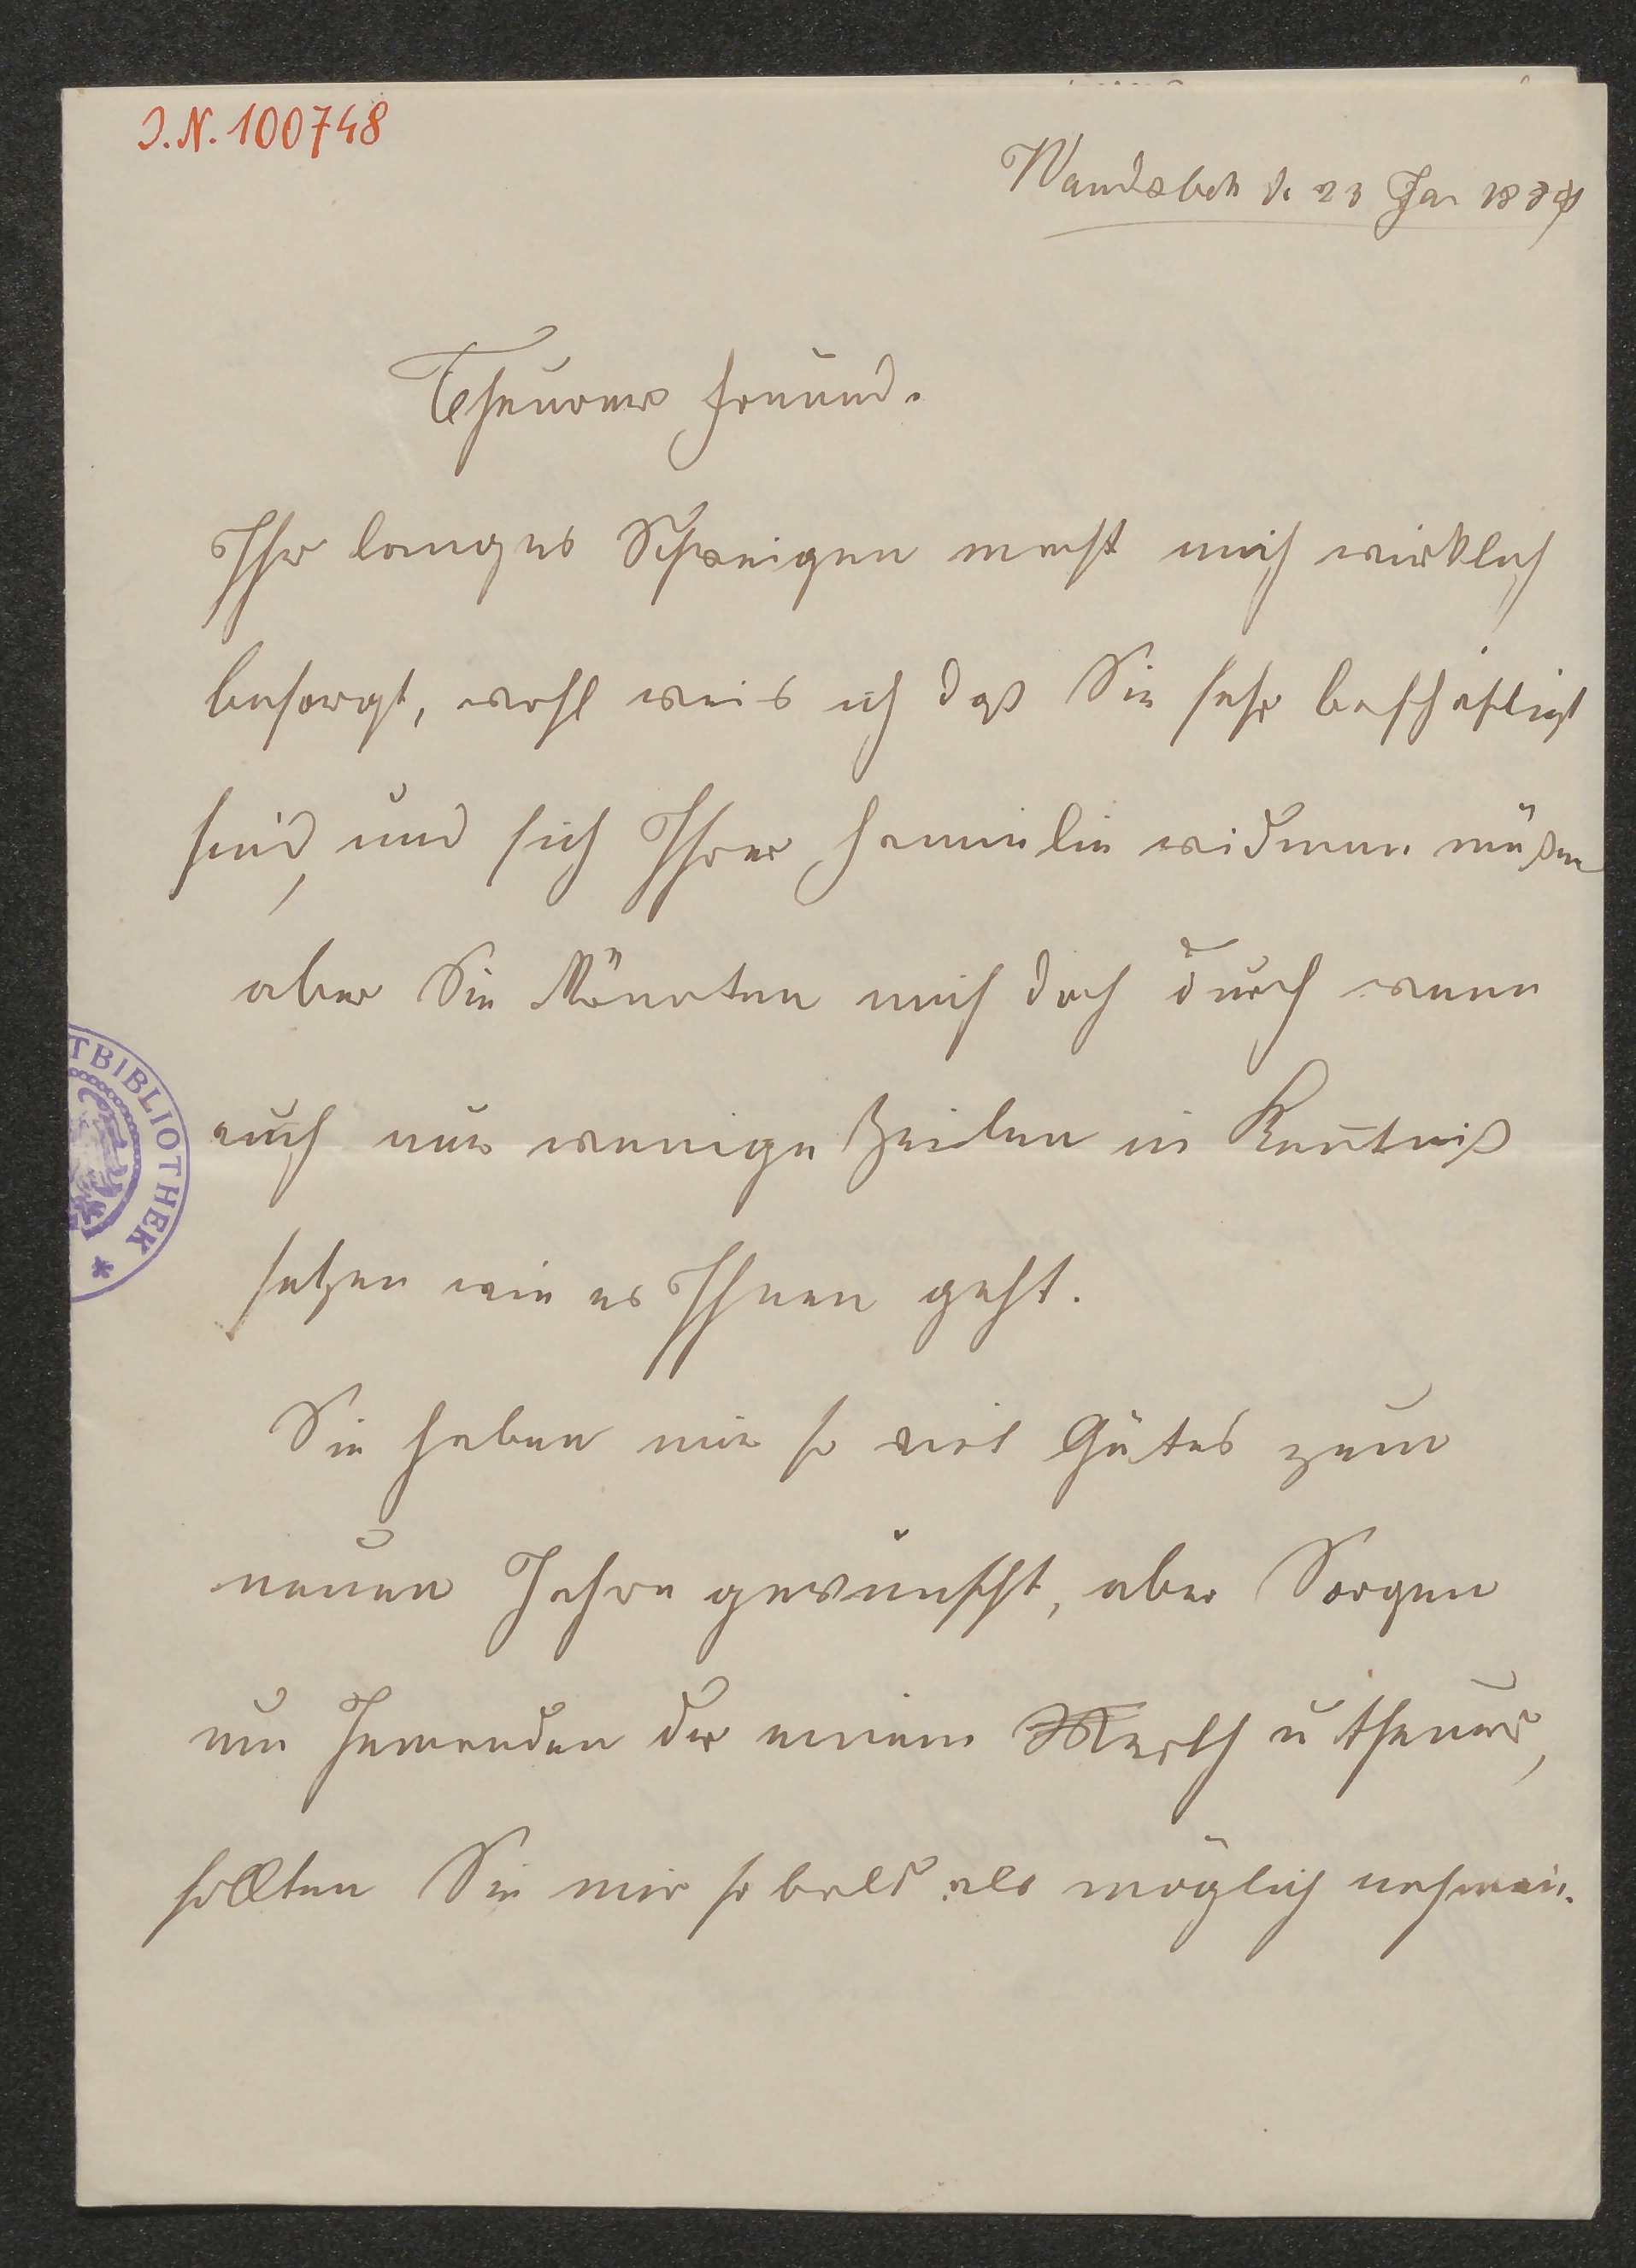 I.N. 100748
Wandsbek d. 23 Jan 188
Theurer Freund.
Ihr langes Schweigen macht mich wirklich
besorgt, wohl weis ich daß Sie sehr beschäftigt
sind, und sich Ihrer Fammilie widmen müßen
aber Sie könnten mich doch durch wenn
auch nur wenige Zeilen in Kentniß
setzen wie es Ihnen geht.
Sie haben mir so viel Gutes zum
neuen Jahre gewünscht, aber Sorgen
um Jemanden der einem Werth u theuer,
sollten Sie mir so bald als möglich nehmen.
TBIBLIOTHEK *